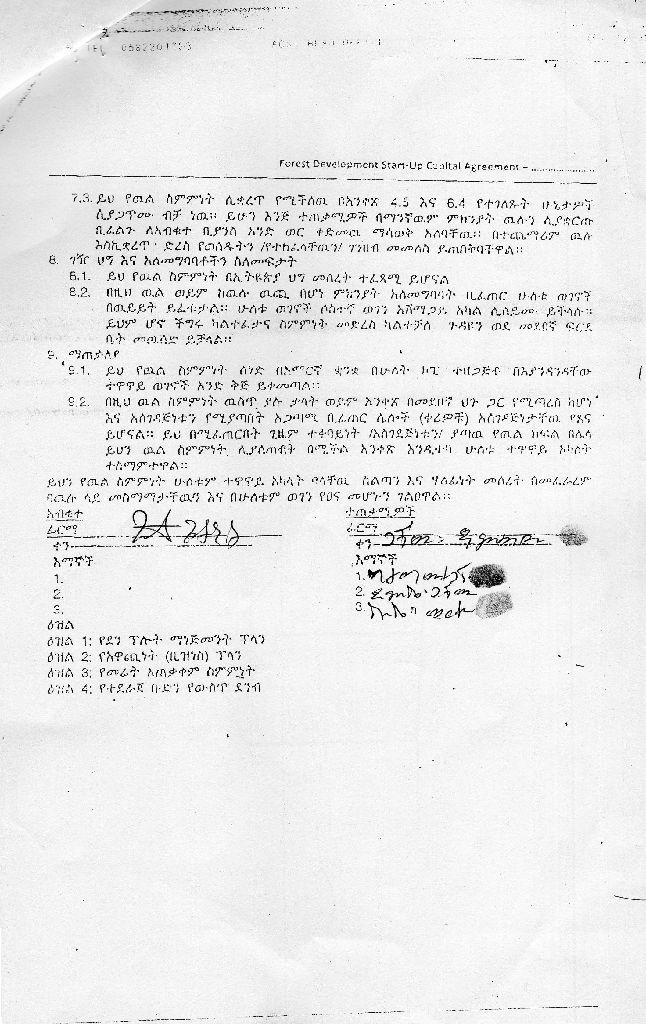 TEL 0582201703
Forest Development Start-Up Capital Agreement – ....................
7.3. ይህ የዉል ስምምነት ሊቋረጥ የሚችለዉ በአንቀጽ 4.5 እና 6.4 የተገለጹት ሁኔታዎች
ሲያጋጥሙ ብቻ ነዉ፡፡ ይሁን እንጅ ተጠቃሚዎች በማንኛዉም ምክንያት ዉሉን ሊያቋርጡ
ቢፈልጉ ለአብቁተ ቢያንስ አንድ ወር ቀድመዉ ማሳወቅ አለባቸዉ፡፡ በተጨማሪም ዉሉ
እስኪቋረጥ ድረስ የወሰዱትን /የተከፈላቸዉን/ ገንዘብ መመለስ ይጠበቅባቸዋል፡፡
8. ገዥ ህግ እና አለመግባባቶችን ስለመፍታት
8.1. ይህ የዉል ስምምነት በኢትዮጵያ ህግ መሰረት ተፈጻሚ ይሆናል
8.2. በዚህ ዉል ወይም ከዉሉ ዉጪ በሆነ ምክንያት አለመግባባት ቢፈጠር ሁለቱ ወገኖች
በዉይይት ይፈቱታል፡፡ ሁለቱ ወገኖች ሶስተኛ ወገን አሸማጋይ አካል ሊሰይሙ ይችላሉ፡፡
ይህም ሆኖ ችግሩ ካልተፈታና ስምምነት መድረስ ካልተቻለ ጉዳዩን ወደ መደበኛ ፍርድ
ቤት መዉሰድ ይቻላል፡፡
9. ማጠቃለያ
9.1. ይህ የዉል ስምምነት ሰነድ በአማርኛ ቋንቋ በሁለት ኮፒ ተዘጋጅቶ በእያንዳንዳቸው
ተዋዋይ ወገኖች አንድ ቅጅ ይቀመጣል፡፡
9.2. በዚህ ዉል ስምምነት ዉስጥ ያሉ ቃላት ወይም አንቀጽ በመደበኛ ህጉ ጋር የሚጣረስ ከሆነ
እና አስገዳጅነቱን የሚያጣበት አጋጣሚ ቢፈጠር ሌሎች (ቀሪዎቹ) አስገዳጅነታቸዉ የጸና
ይሆናል፡፡ ይህ በሚፈጠርበት ጊዜም ተቀባይነት /አስገዳጅነቱን/ ያጣዉ የዉል ክፍል በሌላ
ይህን ዉል ስምምነት ሊያጠብቅ በሚችል አንቀጽ እንዲተካ ሁለቱ ተዋዋይ አካላት
ተስማምተዋል፡፡
ይህን የዉል ስምምነት ሁለቱም ተዋዋይ አካላት ባላቸዉ ስልጣን እና ሃላፊነት መሰረት በመፈራረም
በዉሉ ላይ መስማማታቸዉን እና በሁለቱም ወገን የጸና መሆኑን ገልፀዋል፡፡
አብቁተ ተጠቃሚዎች
ፊርማ ፊርማ
ቀን ቀን
እማኞች እማኞች
1. 1.
2. 2.
3. 3.
ዕዝል
ዕዝል 1: የደን ፕሎት ማኔጅመንት ፕላን
ዕዝል 2: የአዋጪነት (ቢዝነስ) ፕላን
ዕዝል 3: የመሬት አጠቃቀም ስምምነት
ዕዝል 4: የተደራጀ ቡድን የውስጥ ደንብ